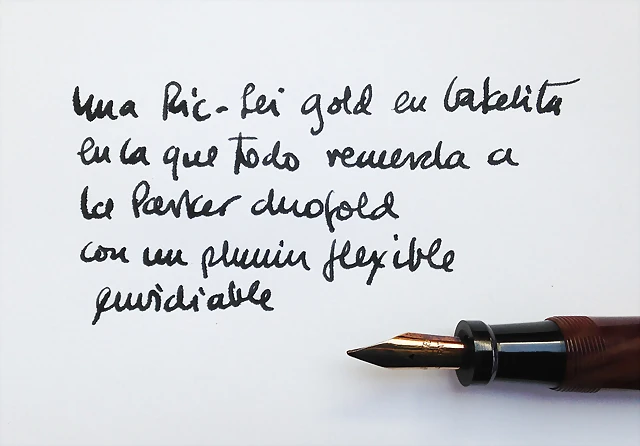 una Ric-Lei gold en bakelita
en la que todo recuerda a
la Parker duofold
con un plumin flexible
envidiable